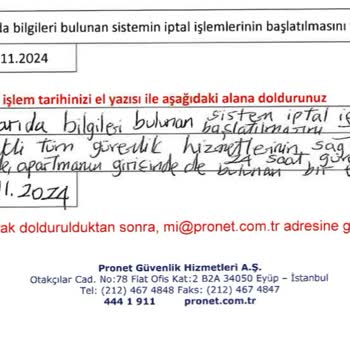 da bilgileri bulunan sistemin iptal işlemlerinin başlatılmasını
.11.2024
işlem tarihinizi el yazısı ile aşağıdaki alana doldurunuz
arıda bilgileri bulunan sistem iptal iş
başlatılmasını
tüm güvenlik hizmetlerinin sağ
apartmanın girişinde de 24 saat
bulunan bir
11.2024
ak doldurulduktan sonra, mi@pronet.com.tr adresine g
Pronet Güvenlik Hizmetleri A.Ş.
Otakçılar Cad. No:78 Flat Ofis Kat:2 B2A 34050 Eyüp – İstanbul
Tel: (212) 467 4848 Faks: (212) 467 4847
444 1 911 pronet.com.tr